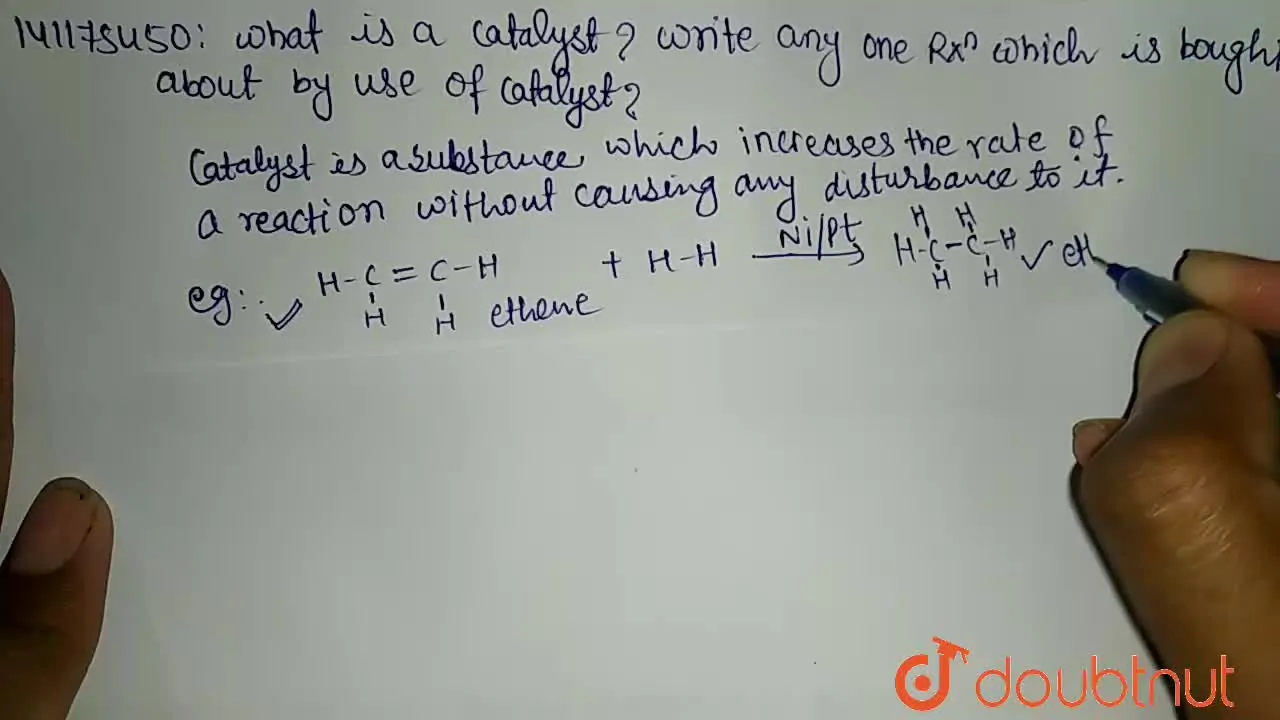 141175450: What is a catalyst? Write any one Rxn which is bough
about by use of catalyst?
Catalyst is a substance which increases the rate of
a reaction without causing any disturbance to it.
eg: ✓ H-C=C-H + H-H Ni/Pt → H-C-C-H ✓ eth
H H ethene
H H
H H
doubtnut